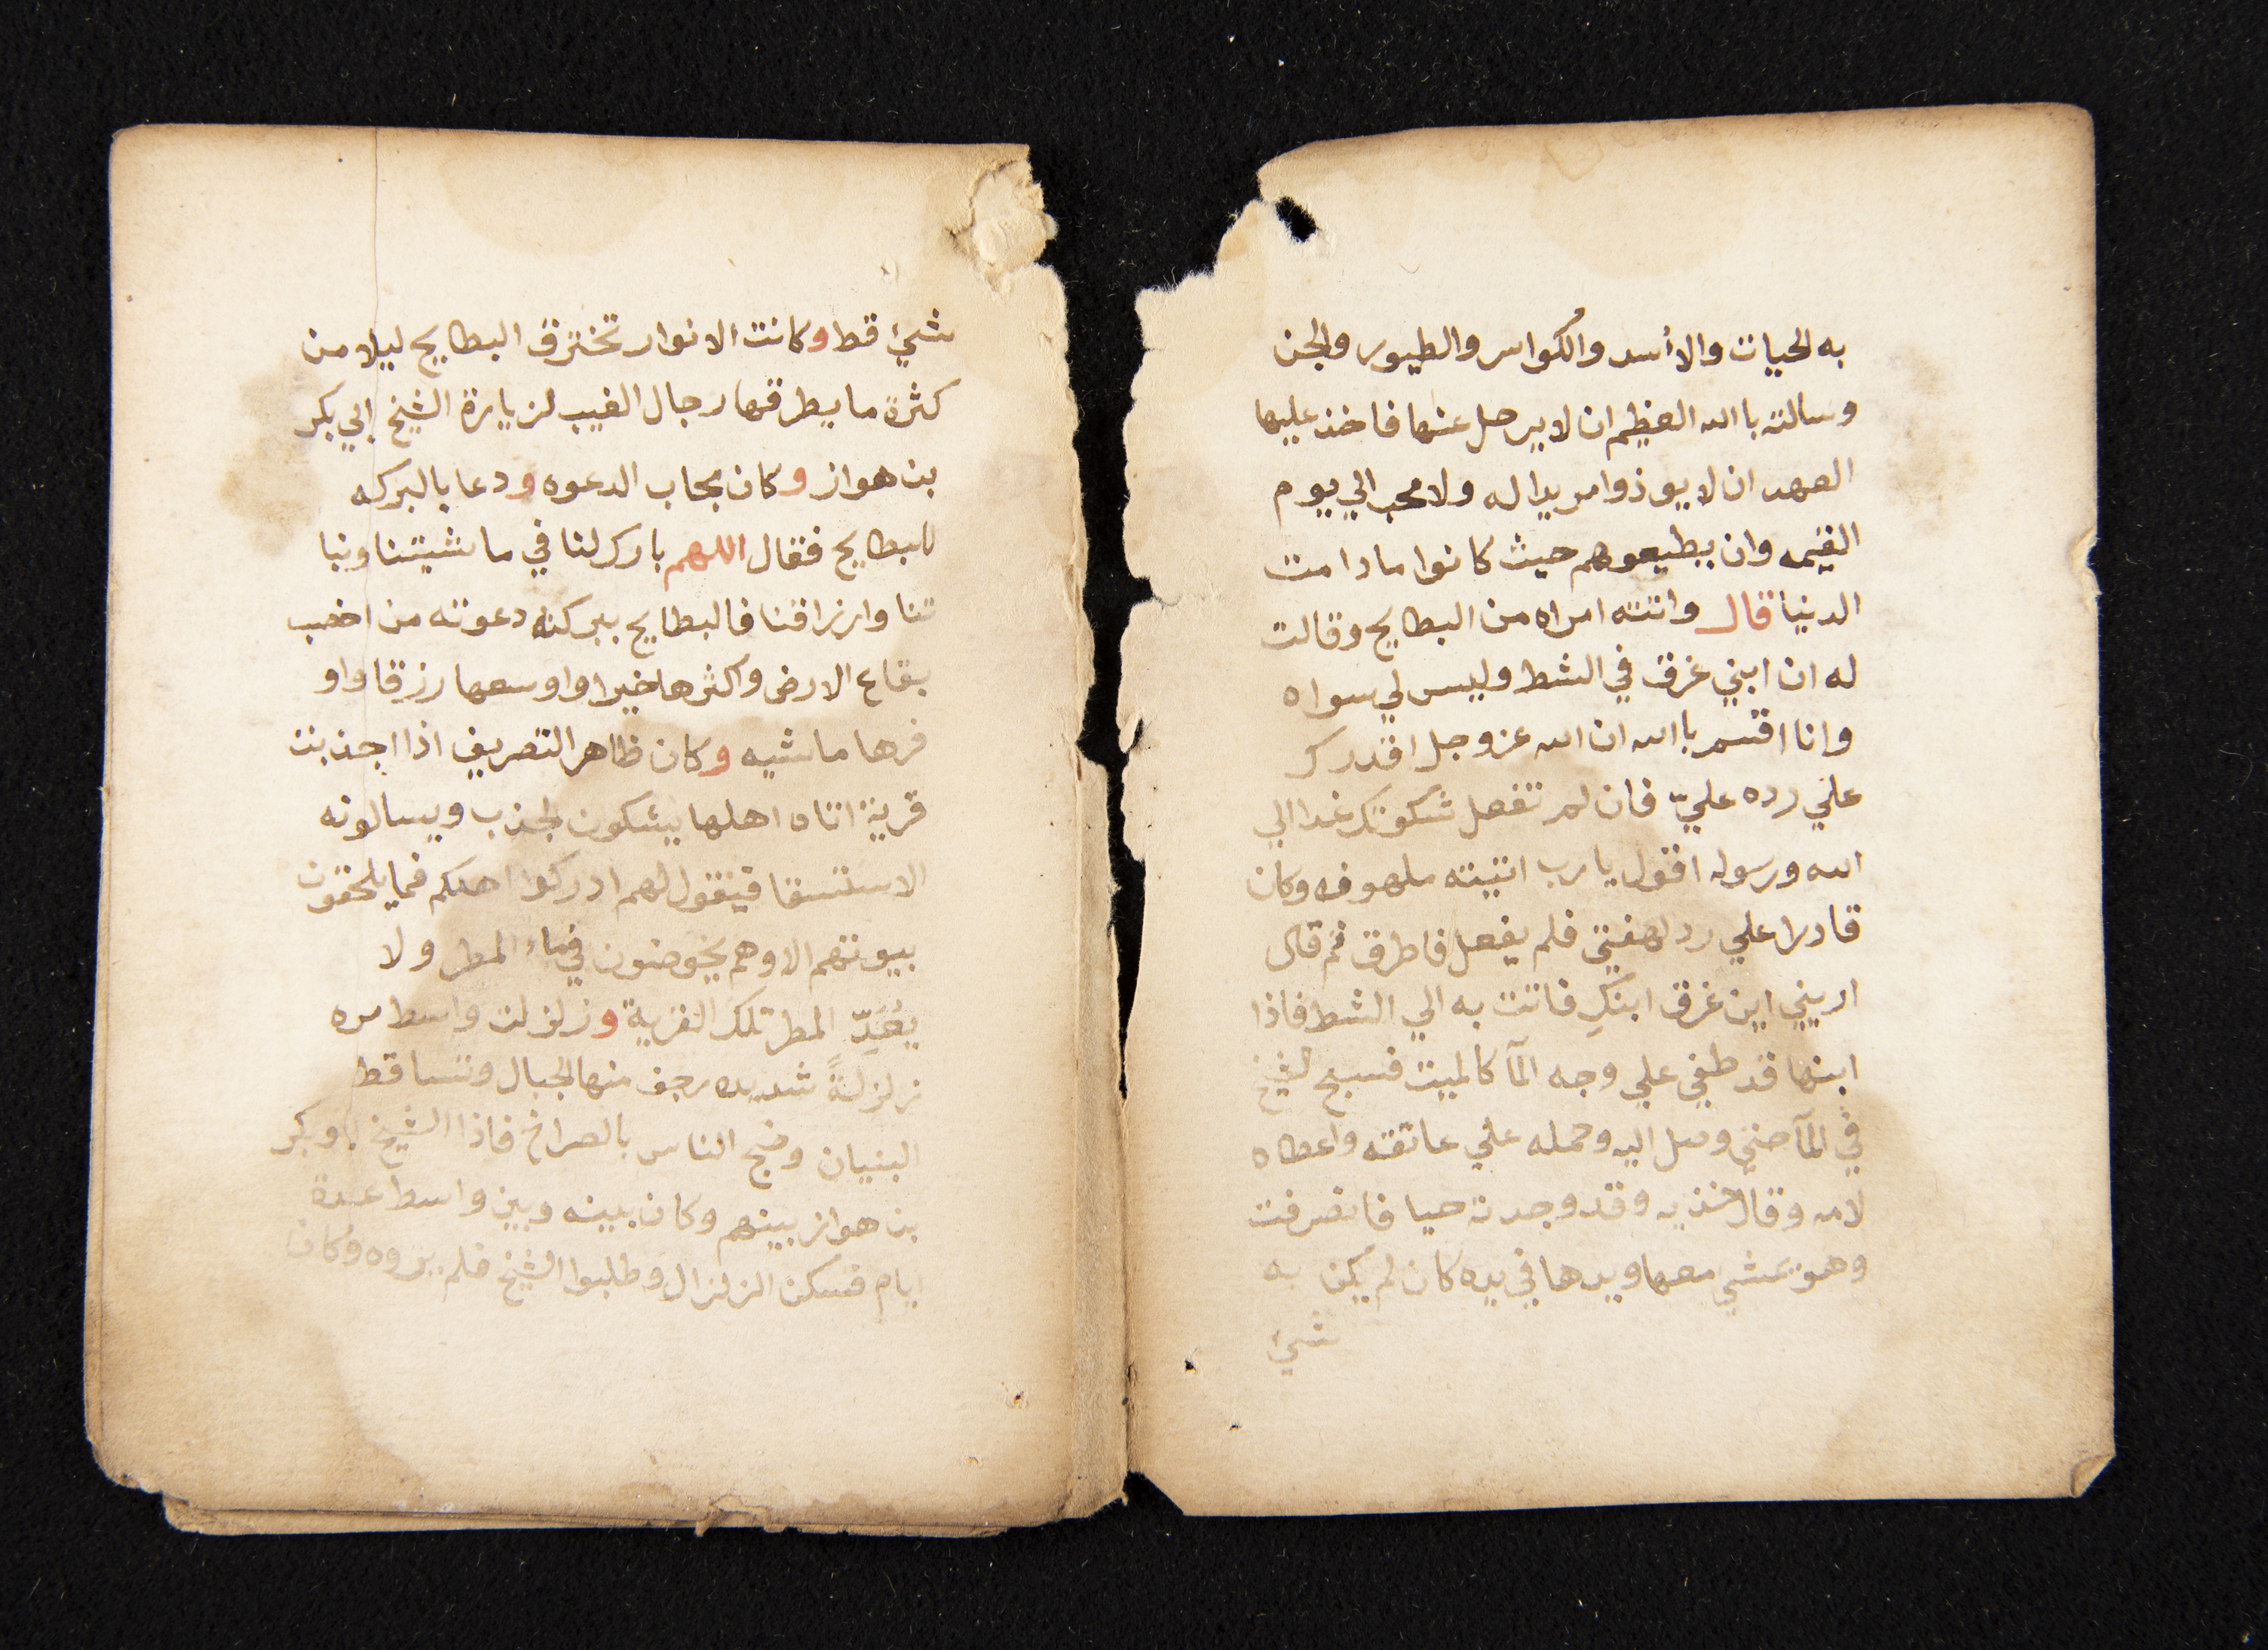 به الحيات والاأسد والكواسر والطيور والجن
وسالته باالله العظيم ان لا يرحل عنها فاخذ عليها
العهد ان لا يوذوا مريدا له ولا محب الي يوم
القيمه وان يطيعوهم حيث كانوا ما دامت
الدنيا قال واتته امراه من البطايح وقالت
له ان ابني غرق في الشط وليس لي سواه
وانا اقسم باالله ان الله عز وجل اقدرك
علي رده عليّ فان لم تفعل شكوتك غدا الي
الله ورسوله اقول يا رب اتيته ملهوفه وكان
قادرا علي رد لهفتي فلم يفعل فاطرق ثم قال
اريني اين غرق ابنكِ فاتت به الي الشط فاذا
ابنها قد طفي علي وجه المآ كالميت فسبح الشيخ
في المآ حتي وصل اليه وحمله علي عاتقه واعطاه
لامه وقال خذيه وقد وجدته حيا فانصرفت
وهو يمشي معها ويدها في يده كان لم يكن به
شيئ
شيئ قط وكانت الانوار تخترق البطايح ليلا من
كثرة ما يطرقها رجال الغيب لزيارة الشيخ ابي بكر
بن هواز وكان مجاب الدعوه ودعا بالبركه
للبطايح فقال اللهم بارك لنا في ماشيتنا ونبا
تنا وارزاقنا فالبطايح ببركة دعوته من اخصب
بقاع الارض واكثرها خيرا واوسعها رزقا واو
فرها ماشيه وكان ظاهر التصريف اذا اجذبت
قرية اتاه اهلها يشكون الجذب ويسالونه
الاستسقا فيقول لهم ادركوا اهلكم فما يلحقون
بيوتهم الا وهم يخوضون في ماء المطر ولا
يُعَدِّ المطر تلك القرية وزلزلت واسط مره
زلزلةً شديده رجف منها الجبال وتساقط
البنيان وضج الناس بالصراخ فاذا الشيخ ابو بكر
بن هواز بينهم وكان بينه وبين واسط عدة
ايام فسكن الزلزال وطلبوا الشيخ فلم يروه وكان